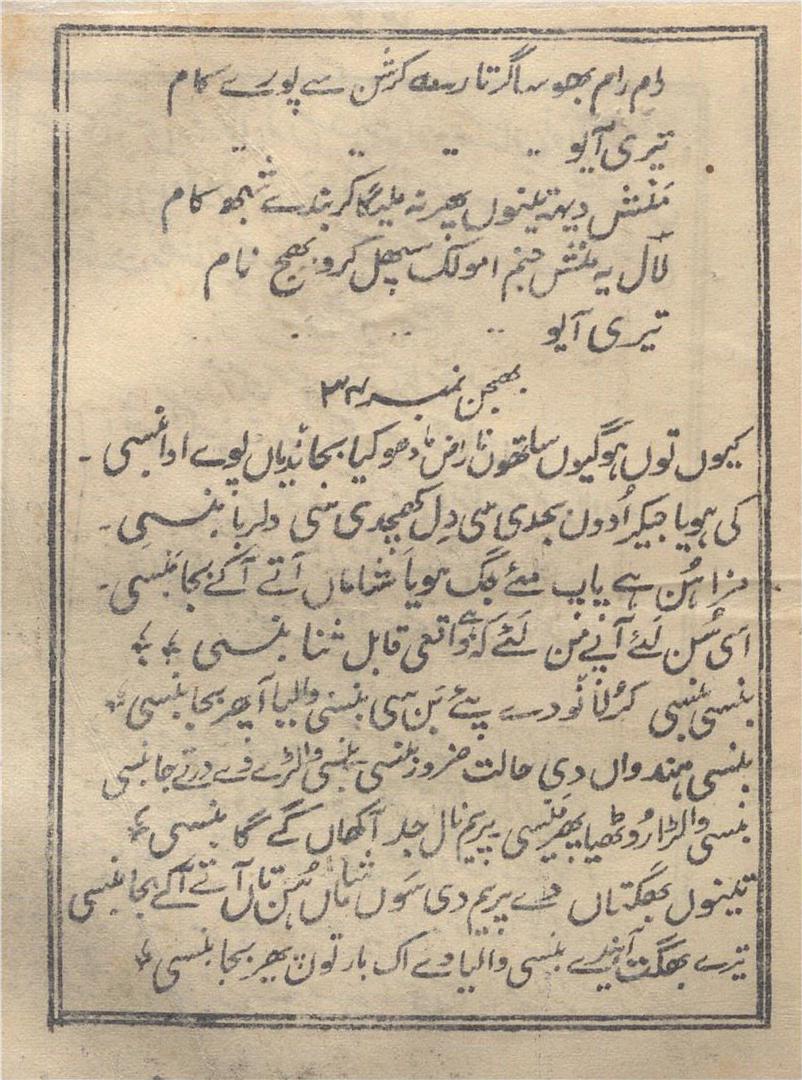 رام رام بھوساگر تارے کرشن سے پورے کام
تیری آیو ..  ..  ..  ..
منش دیہہ تینوں پھر نہ ملیگا کر بندے شبھ کام
لال یہ منش جنم امولک سپھل کرو بھج نام
تیری آیو  ..  ..  ..
بھجن نمبر ۳۷
کیوں توں ہوگیوں ساتھوں ناراض مادھو کیا بجاندیاں پوے ادا بنسی ۔
کی ہویا جیکر اُدوں بجدی سی دِل کھچدی سی دلربا بنسی ۔
مزا ہُن ہے پاپ مئے جگ ہویا شاماں آتے آکے بجا بنسی ۔
اسی سُن لَئے آنے من لَئے کہ ہے واقعی قابل ثنا بنسی
بنسی بنسی کرلاندے پئے بَن سی بنسی والیا آ پھر بجا بنسی
بنسی ہندواں دی حالت ضرور بنسی بنسی والڑے دے در تے جا بنسی
بنسی والڑا رُوٹھیا پھر مَنسی پریم نال جد آکھاں گے گا بنسی
تینوں بھگتاں دے پریم دی سَوں شاماں ہُن تاں آتے آکے بجا بنسی
تیرے بھگت آہندے بنسی والیا وے اک بار توں پھر بجا بنسی